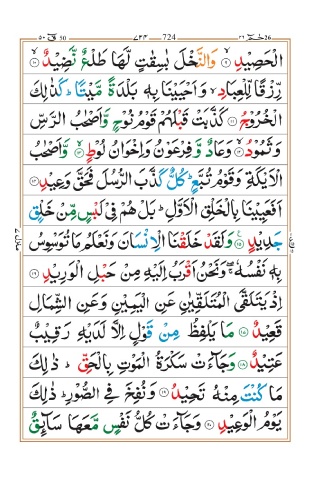 حٰمٓ ٢٦ 724 ٧٢٤ قٓ ٥٠
الْحَصِيْدِ ۙ﴿۹﴾ وَالنَّخْلَ بٰسِقٰتٍ لَّهَا طَلْعٌ نَّضِيْدٌ ۙ﴿۱۰﴾
رِّزْقًا لِّلْعِبَادِ ۙ وَاَحْيَيْنَا بِهٖ بَلْدَةً مَّيْتًا ؕ كَذٰلِكَ
الْخُرُوْجُ ﴿۱۱﴾ كَذَّبَتْ قَبْلَهُمْ قَوْمُ نُوْحٍ وَّاَصْحٰبُ الرَّسِّ
وَثَمُوْدُ ۙ﴿۱۲﴾ وَعَادٌ وَّفِرْعَوْنُ وَاِخْوَانُ لُوْطٍ ۙ﴿۱۳﴾ وَّاَصْحٰبُ
الْاَيْكَةِ وَقَوْمُ تُبَّعٍ ؕ كُلٌّ كَذَّبَ الرُّسُلَ فَحَقَّ وَعِيْدِ ﴿۱۴﴾
اَفَعَيِيْنَا بِالْخَلْقِ الْاَوَّلِ ؕ بَلْ هُمْ فِيْ لَبْسٍ مِّنْ خَلْقٍ
جَدِيْدٍ ﴿۱۵﴾ وَلَقَدْ خَلَقْنَا الْاِنْسَانَ وَنَعْلَمُ مَا تُوَسْوِسُ
بِهٖ نَفْسُهٗ ۖۚ وَنَحْنُ اَقْرَبُ اِلَيْهِ مِنْ حَبْلِ الْوَرِيْدِ ﴿۱۶﴾
اِذْ يَتَلَقَّى الْمُتَلَقِّيٰنِ عَنِ الْيَمِيْنِ وَعَنِ الشِّمَالِ
قَعِيْدٌ ﴿۱۷﴾ مَا يَلْفِظُ مِنْ قَوْلٍ اِلَّا لَدَيْهِ رَقِيْبٌ
عَتِيْدٌ ﴿۱۸﴾ وَجَآءَتْ سَكْرَةُ الْمَوْتِ بِالْحَقِّ ؕ ذٰلِكَ
مَا كُنْتَ مِنْهُ تَحِيْدُ ﴿۱۹﴾ وَنُفِخَ فِي الصُّوْرِ ؕ ذٰلِكَ
يَوْمُ الْوَعِيْدِ ﴿۲۰﴾ وَجَآءَتْ كُلُّ نَفْسٍ مَّعَهَا سَآئِقٌ